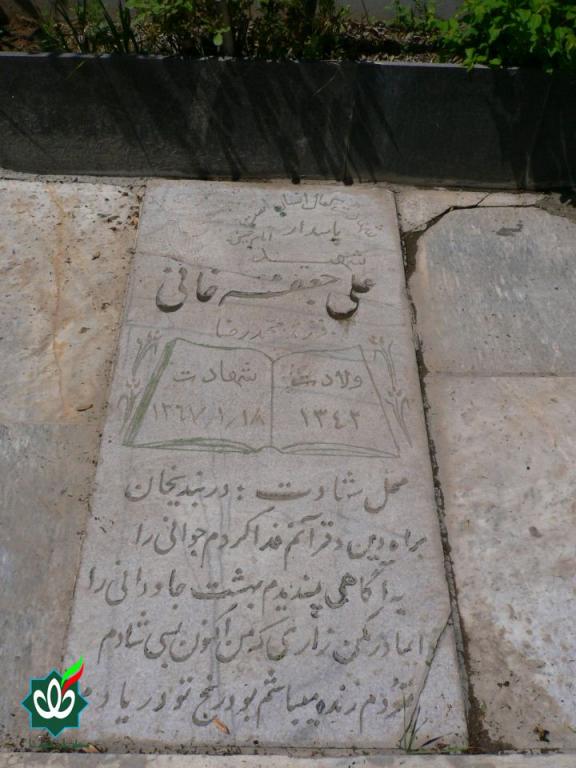 پاسدار
شهید
علی جعفرخانی
فرزند محمدرضا
ولادت شهادت
۱۳۴۲ ۱۳۶۷/۱/۱۸
محل شهادت : دربندیخان
براه دین و قرآنم فدا کردم جوانی را
به آگاهی پسندیدم بهشت جاودانی را
ایمادر مکن زاری که من اکنون بسی شادم
نمردم زنده میباشم بود رنج تو در یادم